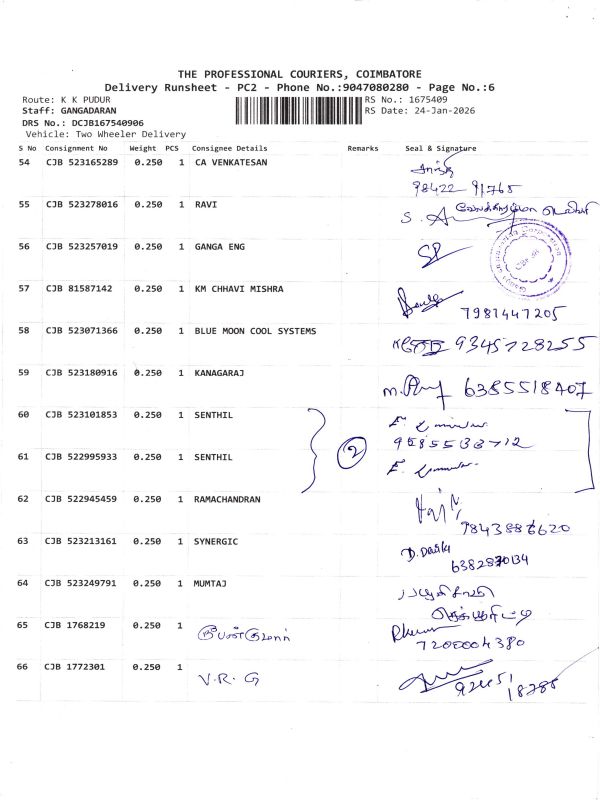 THE PROFESSIONAL COURIERS, COIMBATORE
Delivery Runsheet - PC2 - Phone No.:9047080280 - Page No.:6
Route: K K PUDUR
RS No.: 1675409
Staff: GANGADARAN
RS Date: 24-Jan-2026
DRS No.: DCJB167540906
Vehicle: Two Wheeler Delivery
S No Consignment No Weight PCS Consignee Details Remarks Seal & Signature
54 CJB 523165289 0.250 1 CA VENKATESAN
98422 91765
55 CJB 523278016 0.250 1 RAVI
56 CJB 523257019 0.250 1 GANGA ENG
57 CJB 81587142 0.250 1 KM CHHAVI MISHRA
7981447205
58 CJB 523071366 0.250 1 BLUE MOON COOL SYSTEMS
9345728255
59 CJB 523180916 0.250 1 KANAGARAJ
6385518407
60 CJB 523101853 0.250 1 SENTHIL
2
61 CJB 522995933 0.250 1 SENTHIL
62 CJB 522945459 0.250 1 RAMACHANDRAN
9843886620
63 CJB 523213161 0.250 1 SYNERGIC
64 CJB 523249791 0.250 1 MUMTAJ
65 CJB 1768219 0.250 1
7200004380
66 CJB 1772301 0.250 1 V.R. G